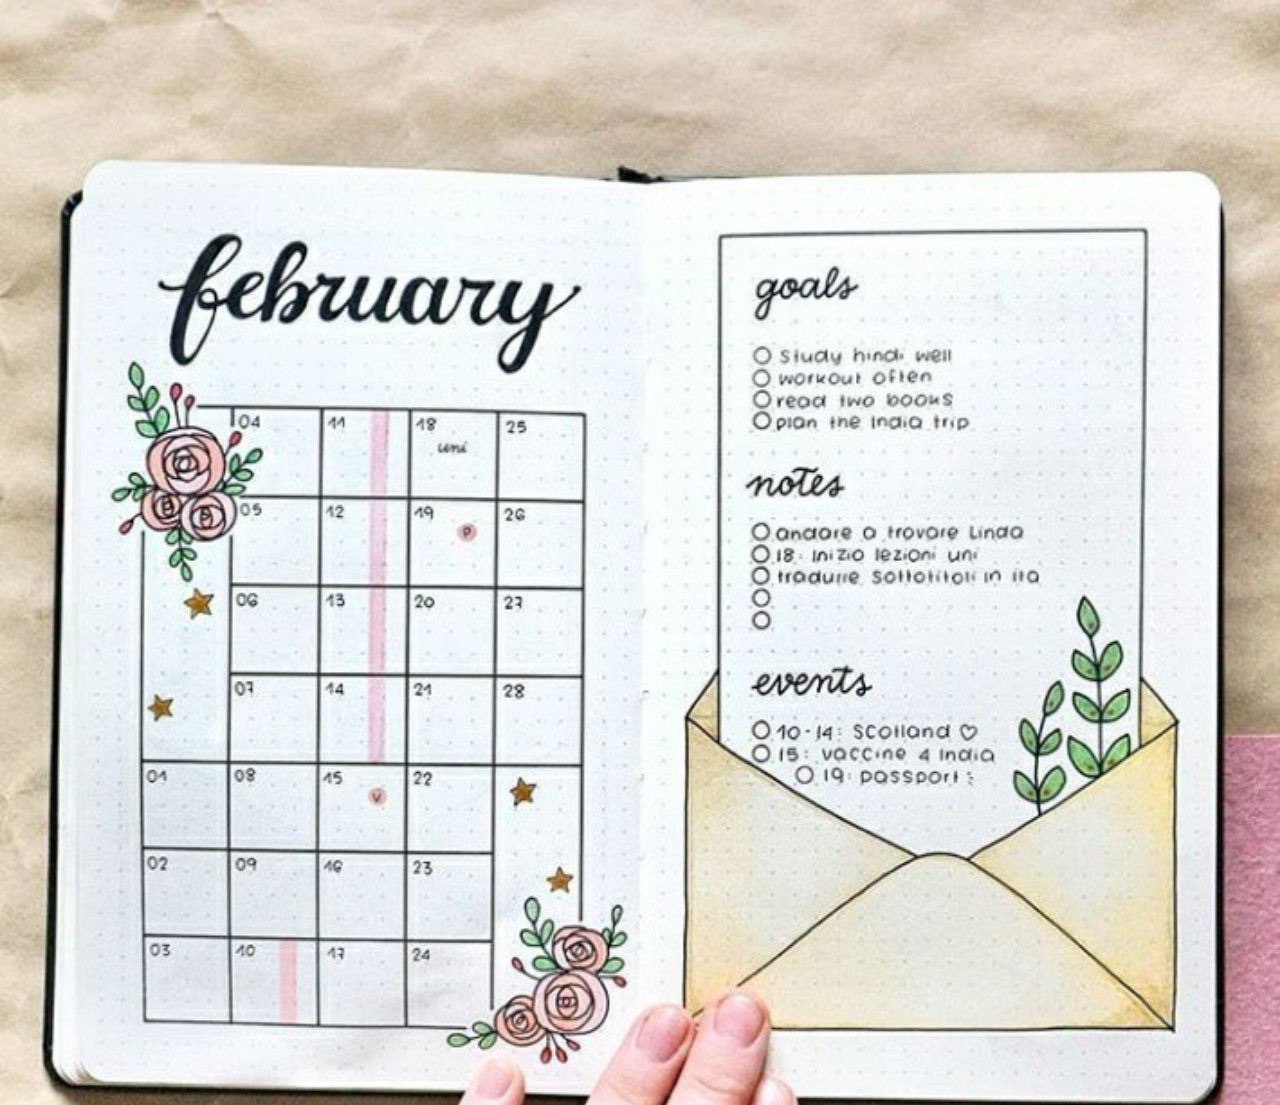 february
04 11 18 25
uni
05 12 19 26
P
06 13 20 27
07 14 21 28
01 08 15 22
V
02 09 16 23
03 10 17 24
goals
study hindi well
workout often
read two books
plan the India trip
notes
andare a trovare Linda
18: inizio lezioni uni
tradurre sottotitoli in ita
events
10-14: Scotland ♡
15: vaccine 4 India
19: passport